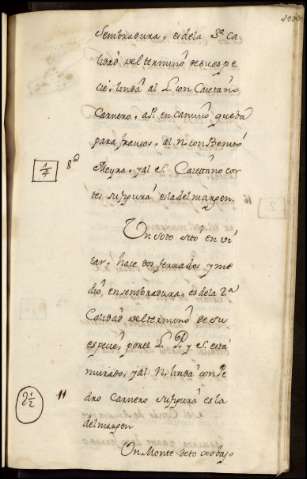 Sembradura, es dela 3ª Ca
lidad del termino desuespe
cie, linda al L. con Caietano
Carnero, al P. en camino que ba
para fransos, al N. con Bernar
8ª Neyra, y al S. Caietano cor
tes su figura esla del margen.
Un Soto sito en vi
lar, hace dos ferrados y me
dio, en sembradura, es dela 2ª
Calidad del termino de su
especie, por el L. P. y S. esta
murado, y al N. linda con Pe
11 dro Carnero su figura es la
2 1/2
del margen
Un Monte Sito do bajo